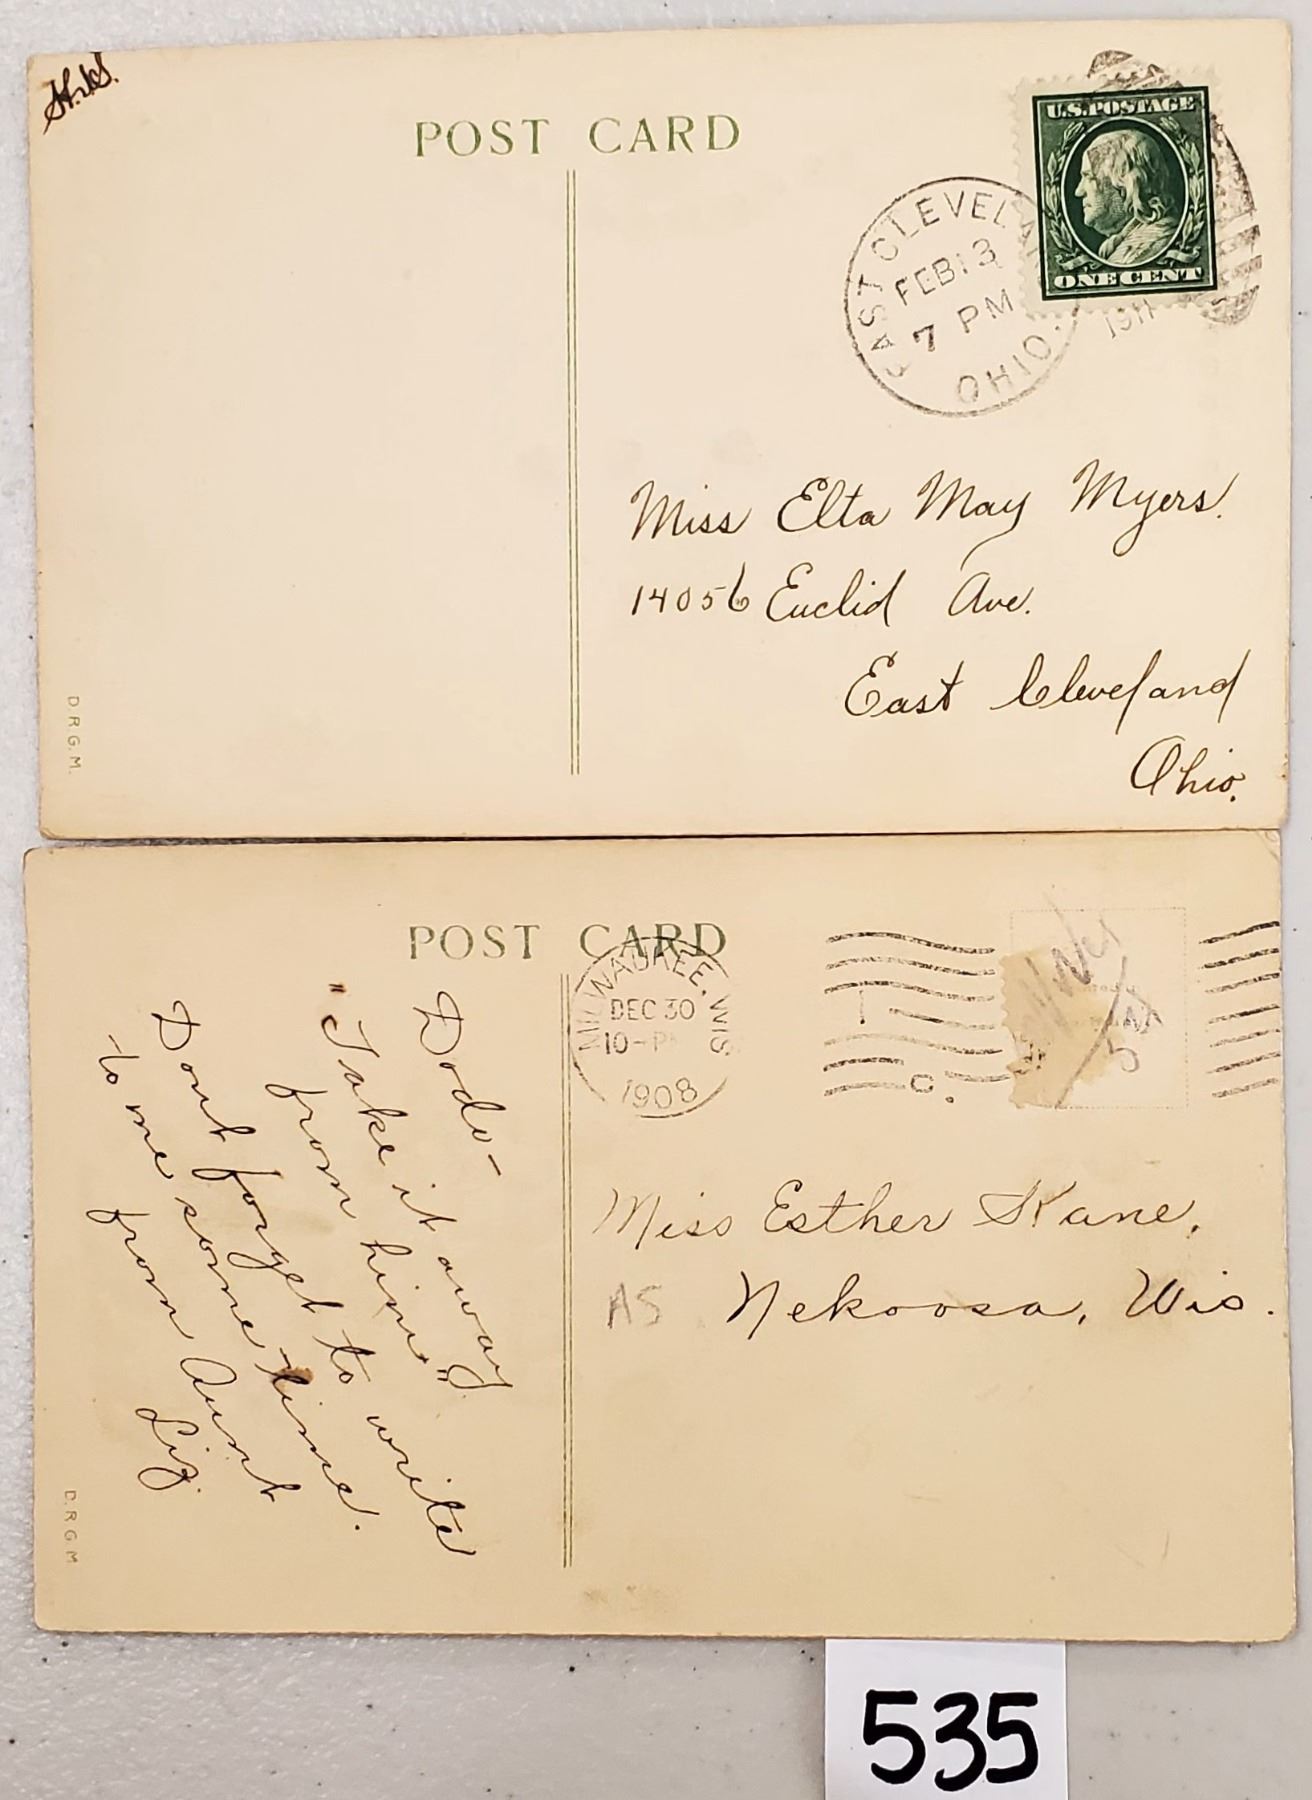 POST CARD
U.S. POSTAGE
ONE CENT
EAST CLEVELAN
FEB 13
7 PM
OHIO.
1911
Miss Elta May Myers.
14056 Euclid Ave.
East Cleveland
Ohio.
D.R.G.M.
POST CARD
MILWAUKEE, WIS
DEC 30
10-P
1908
Dodo-
"Take it away
from him."
Dont forget to write
to me some time.
from Aunt
Liz.
Miss Esther Kane,
AS Nekoosa, Wis.
D.R.G.M
535